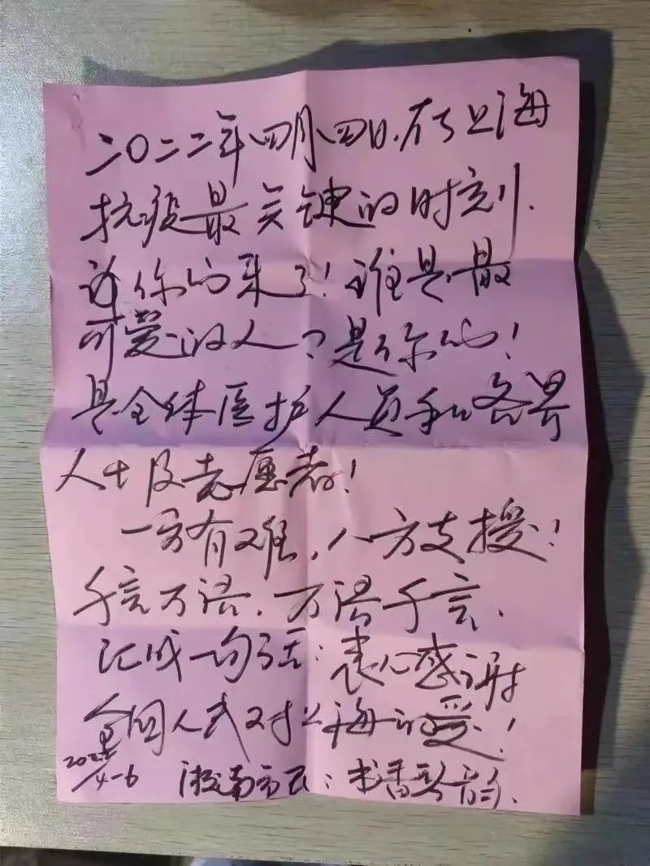 二〇二二年四月四日.在上海
抗疫最关键的时刻.
你们来了!谁是最
可爱的人?是你们!
是全体医护人员和各界
人士及志愿者!
一方有难,八方支援!
千言万语.万语千言.
汇成一句话:衷心感谢
全国人民对上海的爱!
2022
4-6
市民:书香琴韵.